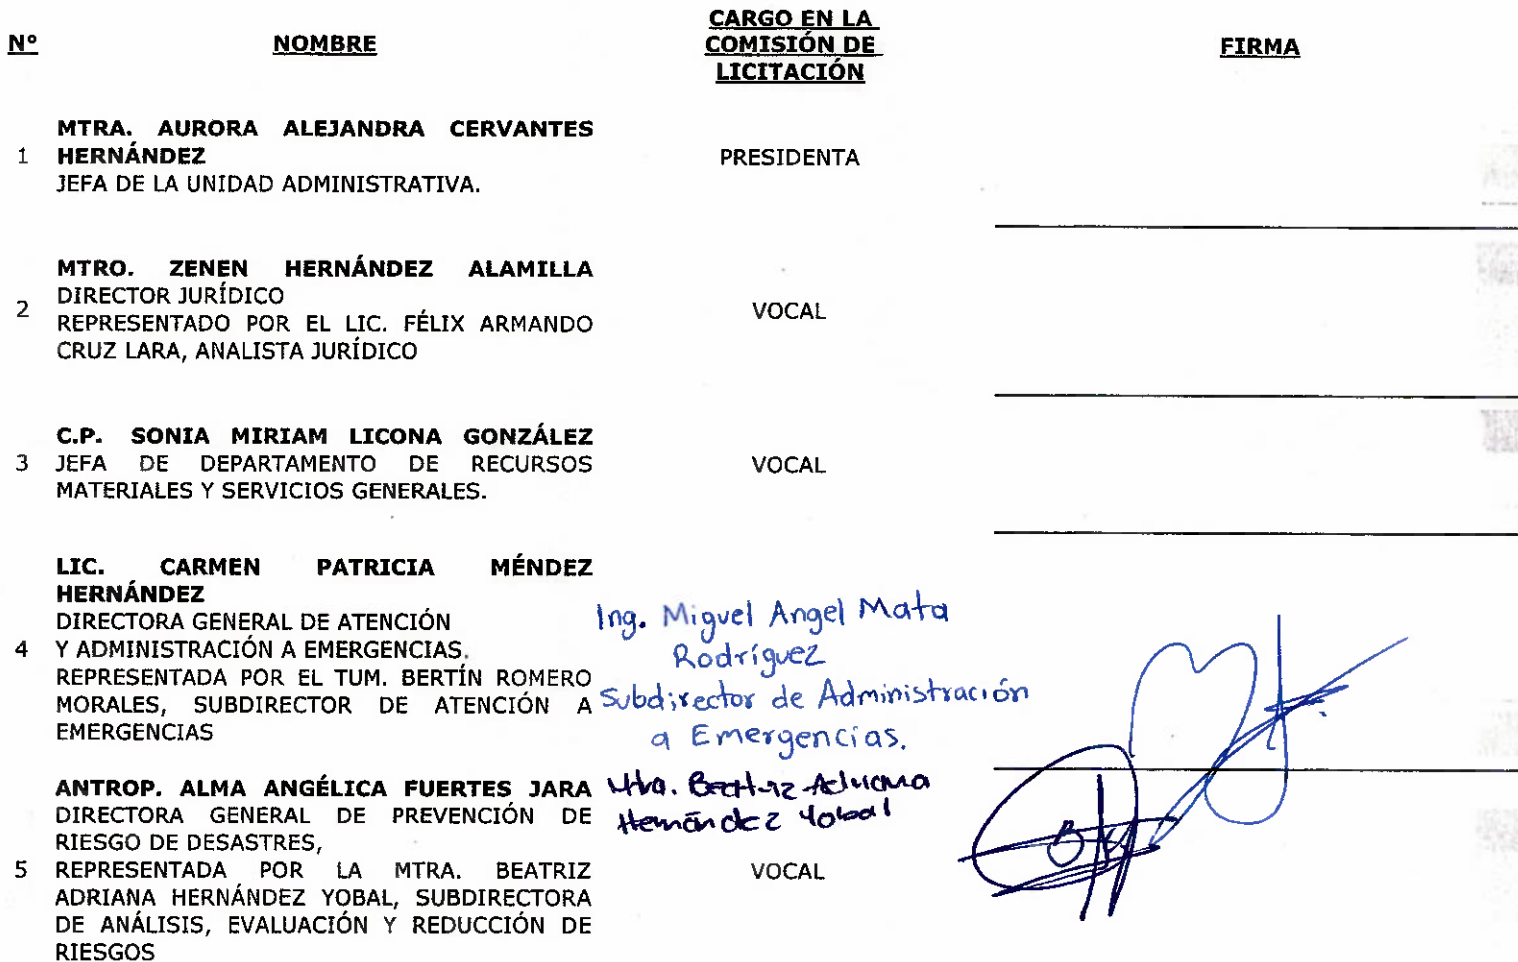 Nº NOMBRE CARGO EN LA COMISIÓN DE LICITACIÓN FIRMA
MTRA. AURORA ALEJANDRA CERVANTES
1 HERNÁNDEZ PRESIDENTA
JEFA DE LA UNIDAD ADMINISTRATIVA.
MTRO. ZENEN HERNÁNDEZ ALAMILLA
DIRECTOR JURÍDICO
2 VOCAL
REPRESENTADO POR EL LIC. FÉLIX ARMANDO
CRUZ LARA, ANALISTA JURÍDICO
C.P. SONIA MIRIAM LICONA GONZÁLEZ
3 JEFA DE DEPARTAMENTO DE RECURSOS VOCAL
MATERIALES Y SERVICIOS GENERALES.
LIC. CARMEN PATRICIA MÉNDEZ
HERNÁNDEZ
DIRECTORA GENERAL DE ATENCIÓN
4 Y ADMINISTRACIÓN A EMERGENCIAS.
REPRESENTADA POR EL TUM. BERTÍN ROMERO
MORALES, SUBDIRECTOR DE ATENCIÓN A
EMERGENCIAS
Ing. Miguel Angel Mata
Rodríguez
Subdirector de Administración
a Emergencias.
ANTROP. ALMA ANGÉLICA FUERTES JARA
DIRECTORA GENERAL DE PREVENCIÓN DE
RIESGO DE DESASTRES,
5 REPRESENTADA POR LA MTRA. BEATRIZ VOCAL
ADRIANA HERNÁNDEZ YOBAL, SUBDIRECTORA
DE ANÁLISIS, EVALUACIÓN Y REDUCCIÓN DE
RIESGOS
Mtra. Beatriz Adriana
Hernández Yobal